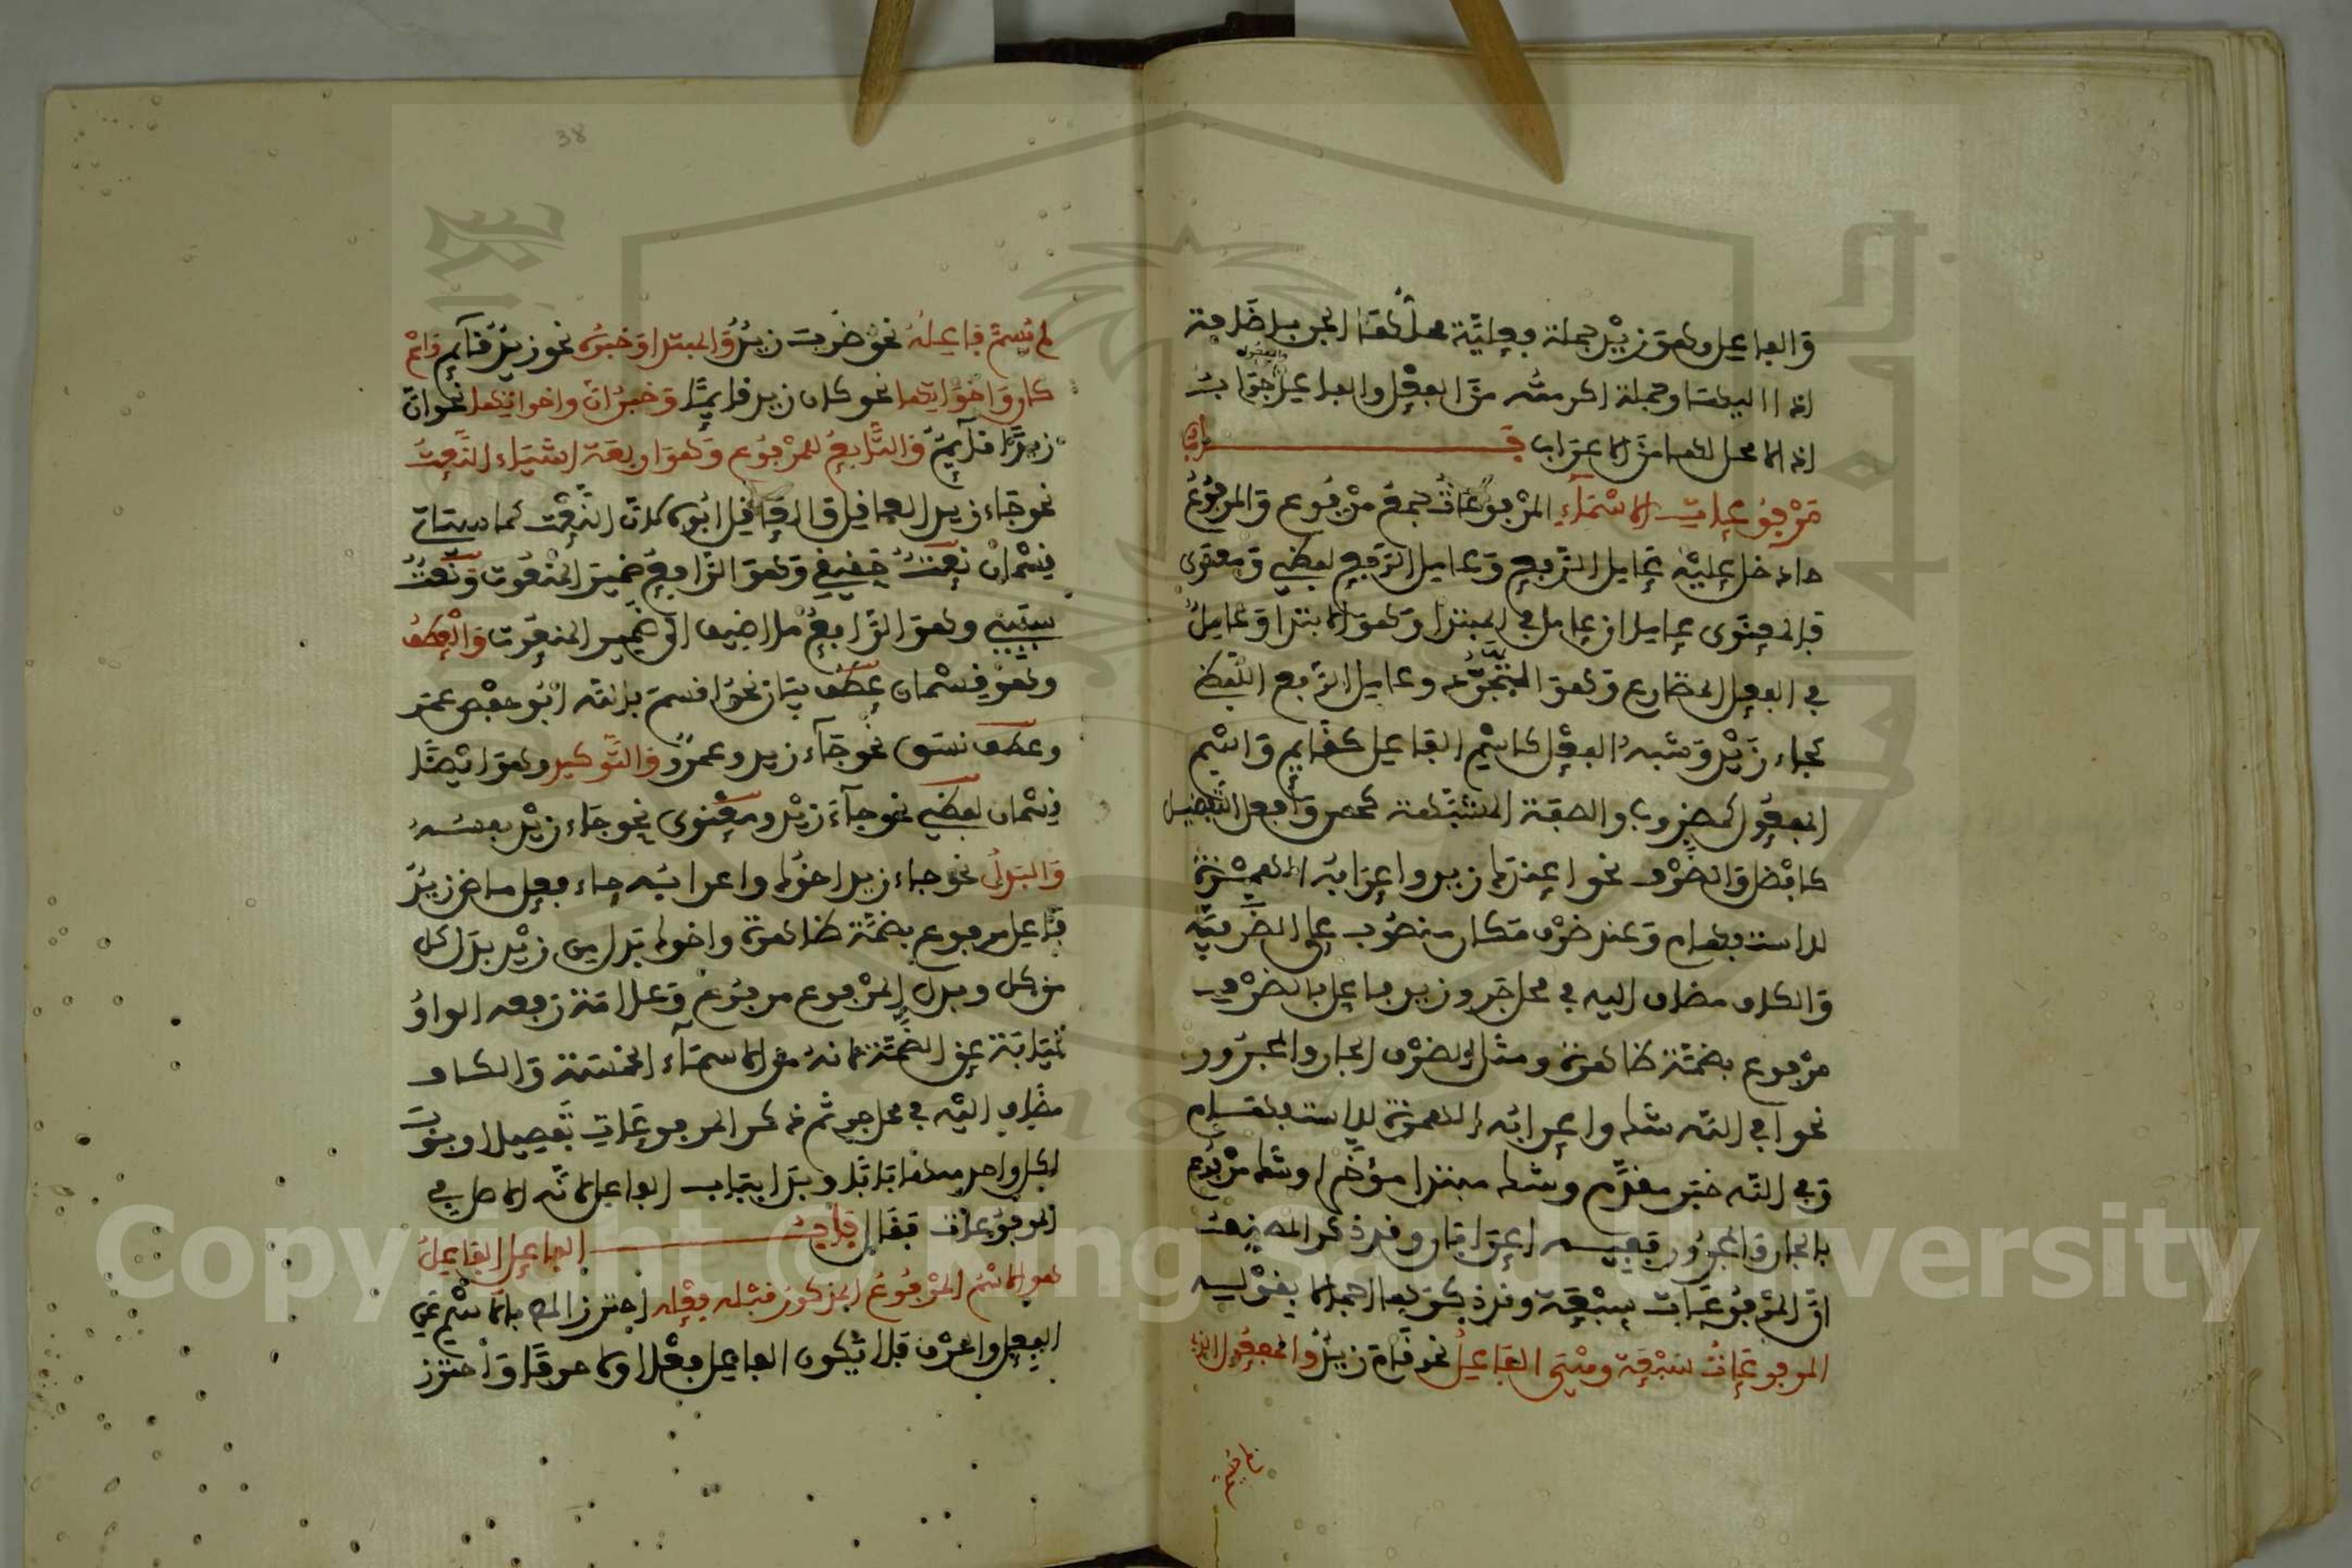 والفاعل وهو زيد جملة فعلية محلها الجر باضافة
اذا اليها وجملة اكرمته من الفعل والفاعل والمفعول جواب
اذا لا محل لها من الاعراب باب
مرفوعات الاسماء المرفوعات جمع مرفوع والمرفوع
ما دخل عليه عامل الرفع وعامل الرفع لفظي ومعنوي
فالمعنوي عاملان عامل في المبتدا وهو الابتدا وعامل
في الفعل المضارع وهو التجرد وعامل الرفع اللفظي
كجاء زيد وشبه الفعل كاسم الفاعل كقايم واسم
المفعول كمضروب والصفة المشبهة كحسن وافعل التفضيل
كافضل والظرف نحو اعندك زيد واعرابه الهمزة
للاستفهام وعند ظرف مكان منصوب على الظرفية
والكاف مضاف اليه في محل جر وزيد فاعل بالظرف
مرفوع بضمة ظاهرة ومثل الظرف الجار والمجرور
نحو افي الله شك واعرابه الهمزة للاستفهام
وفي الله خبر مقدم وشك مبتدا مؤخر او شك مرفوع
بالجار والمجرور ففيه اعرابان وقد ذكر المصنف
ان المرفوعات سبعة وقد ذكرها اجمالا بقوله
المرفوعات سبعة وهي الفاعل نحو قام زيد والمفعول الذي
لم يسم فاعله نحو ضرب زيد والمبتدا وخبره نحو زيد قآيم واسم
كان واخواتها نحو كان زيد قايما وخبر ان واخواتها نحو ان
زيدا قآيم والتابع للمرفوع وهو اربعة اشياء النعت
نحو جاء زيد العاقل او العاقل ابوه لان النعت كما سياتي
قسمان نعت حقيقي وهو الرافع ضمير المنعوت ونعت
سببي وهو الرافع ما اضيف الى ضمير المنعوت والعطف
وهو قسمان عطف بيان نحو اقسم بالله ابو حفص عمر
وعطف نسق نحو جآء زيد وعمرو والتوكيد وهو ايضا
قسمان لفظي نحو جآء زيد ومعنوي نحو جاء زيد نفسه
والبدل نحو جاء زيد اخوك واعرابه جاء فعل ماض زيد
فاعل مرفوع بضمة ظاهرة واخوك بدل من زيد بدل كل
من كل وبدل المرفوع مرفوع وعلامة رفعه الواو
نيابة عن الضمة لانه من الاسمآء الخمسة والكاف
مضاف اليه في محل جر ثم ذكر المرفوعات تفصيلا وبوب
لكل واحد منها بابا وبدا بباب الفاعل لانه الاصل في
المرفوعات فقال باب الفاعل الفاعل
هو الاسم المرفوع المذكور قبله فعله احترز المص بالاسم عن
الفعل والحرف فلا يكون الفاعل فعلا ولا حرفا واحترز
38
Copyright © King Saud University